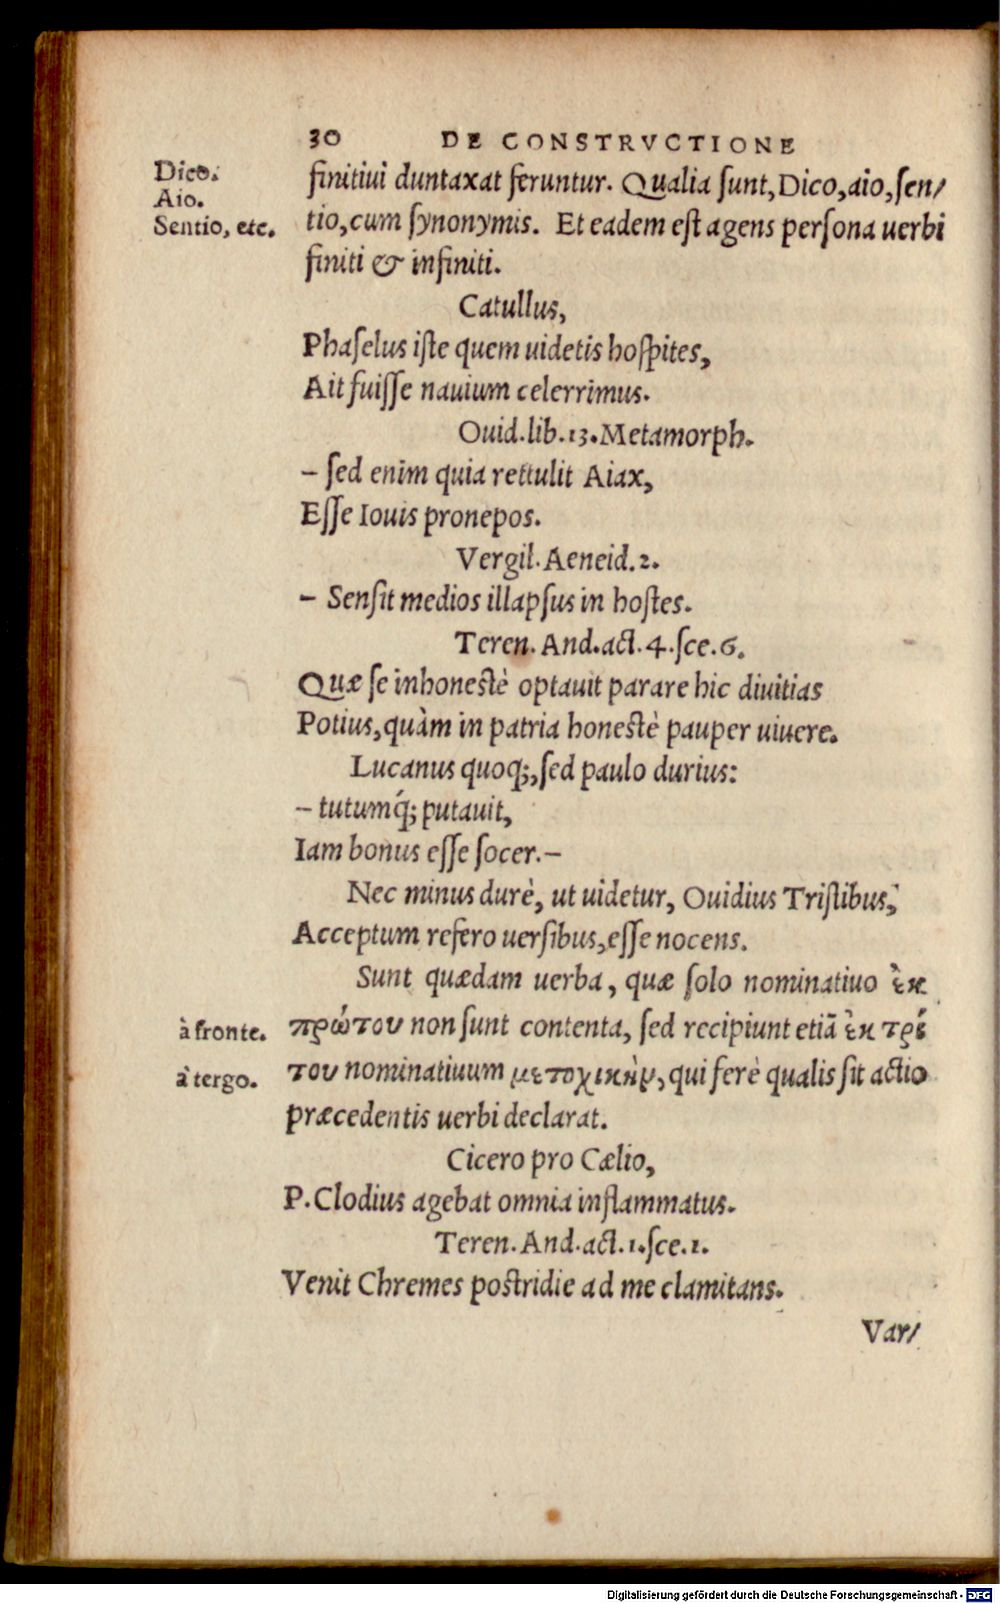 30 DE CONSTRVCTIONE
Dico.
Aio.
Sentio, etc.
finitiui duntaxat feruntur. Qualia ſunt, Dico, aio, ſen/
tio, cum ſynonymis. Et eadem eſt agens perſona uerbi
finiti & infiniti.
Catullus,
Phaſelus iſte quem uidetis hoſpites,
Ait fuiſſe nauium celerrimus.
Ouid. lib. 13. Metamorph.
– ſed enim quia rettulit Aiax,
Eſſe Iouis pronepos.
Vergil. Aeneid. 2.
– Senſit medios illapſus in hoſtes.
Teren. And. act. 4. ſce. 6.
Quæ ſe inhoneſtè optauit parare hic diuitias
Potius, quàm in patria honeſtè pauper uiuere.
Lucanus quoq;, ſed paulo durius:
– tutumq́; putauit,
Iam bonus eſſe ſocer. –
Nec minus durè, ut uidetur, Ouidius Triſtibus,
Acceptum refero uerſibus, eſſe nocens.
Sunt quædam uerba, quæ ſolo nominatiuo ἐκ
à fronte.
πρώτου non ſunt contenta, ſed recipiunt etiã ἐκ τρί
à tergo.
του nominatiuum μετοχικὴν, qui ferè qualis ſit actio
præcedentis uerbi declarat.
Cicero pro Cælio,
P. Clodius agebat omnia inflammatus.
Teren. And. act. 1. ſce. 1.
Venit Chremes poſtridie ad me clamitans.
Var/
Digitalisierung gefördert durch die Deutsche Forschungsgemeinschaft - DFG